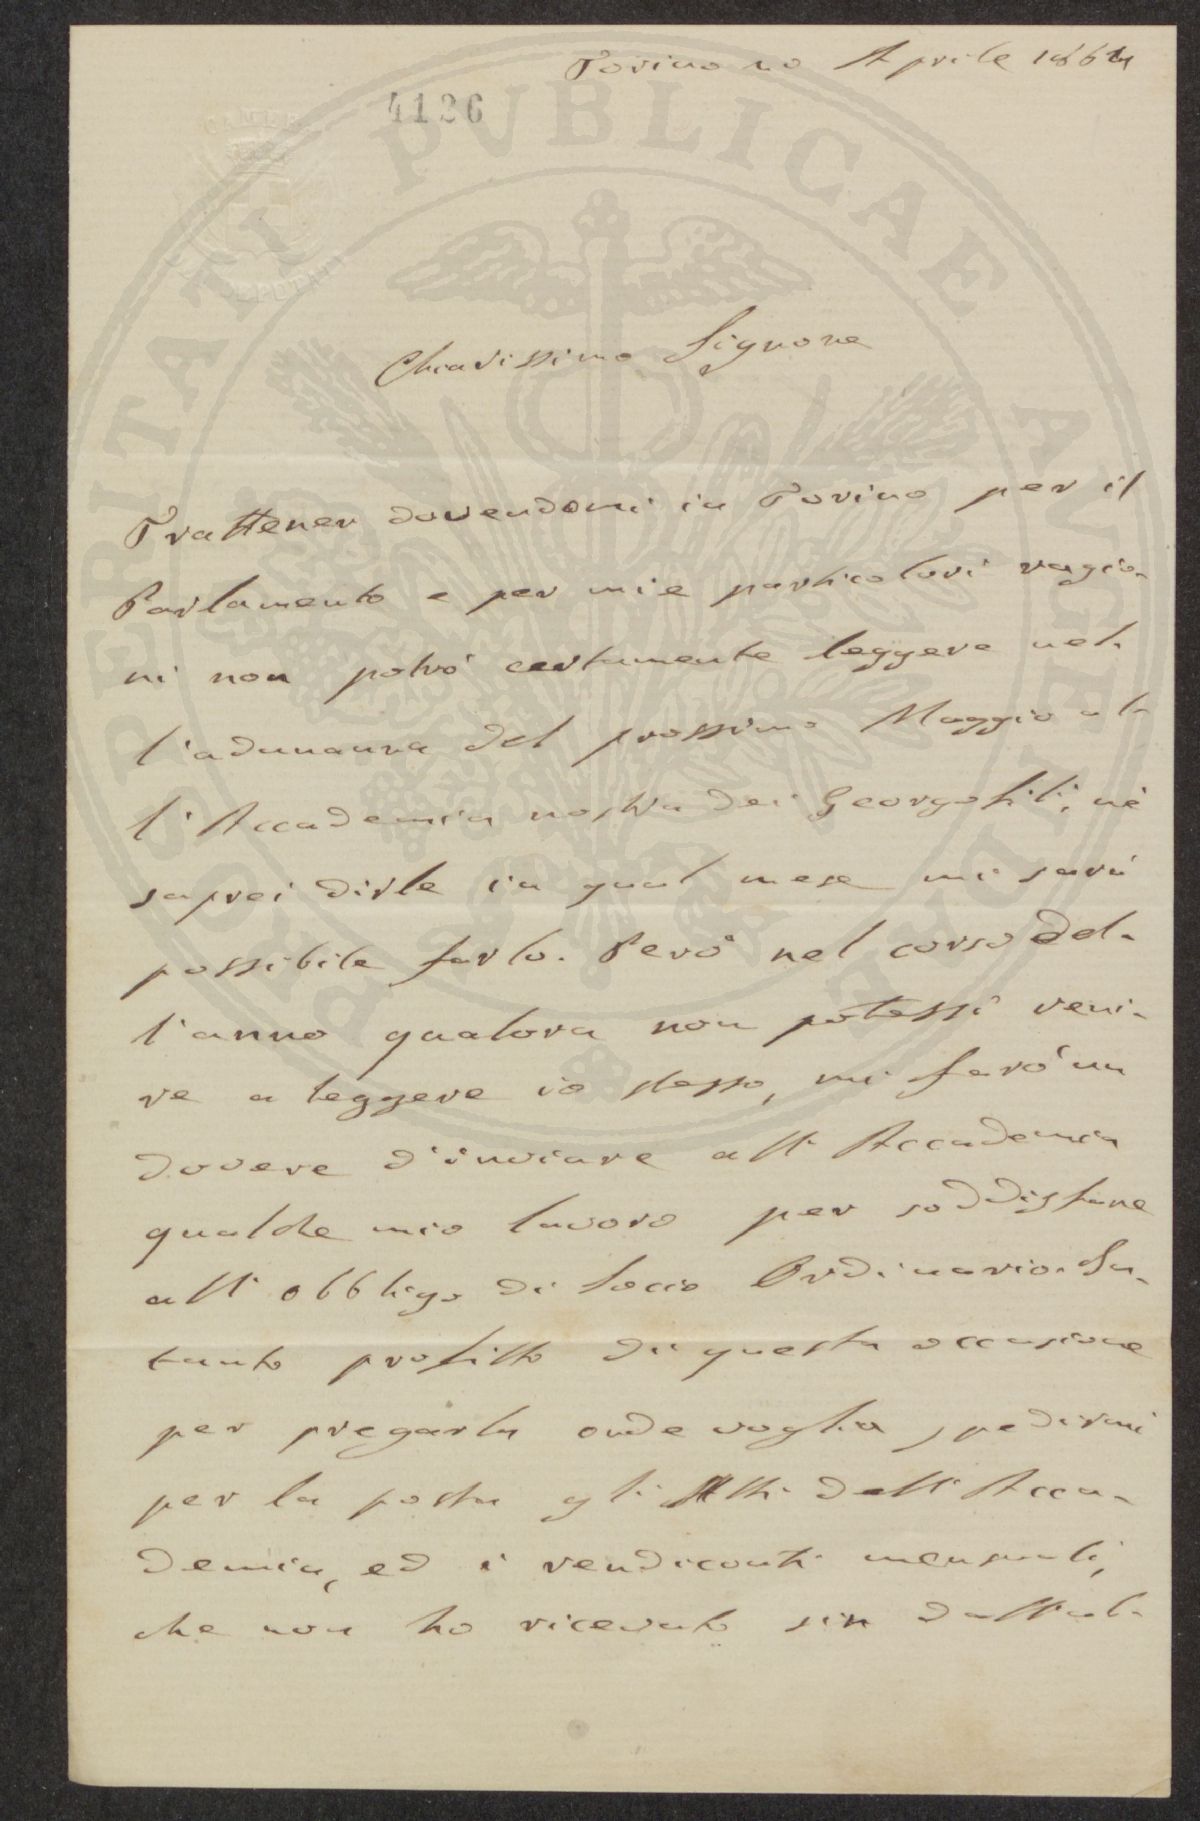 Torino 20 Aprile 1864
4126
CAMERA
DEPUTATI
PROSPERITATI PUBLICAE AUGENDAE
Chiarissimo Signore
Trattener dovendomi in Torino per il
Parlamento e per mie particolari ragio-
ni non potrò certamente leggere nel-
l'adunanza del prossimo Maggio al-
l'Accademia nostra dei Georgofili, nè
saprei dirle in qual mese mi sarà
possibile farlo. Però nel corso del-
l'anno qualora non potessi veni-
re a leggere io stesso, mi farò un
dovere d'inviare all'Accademia
qualche mio lavoro per soddisfare
all'obbligo di Socio Ordinario. In-
tanto profitto di questa occasione
per pregarla onde voglia spedirmi
per la posta gli Atti dell'Acca-
demia, ed i rendiconti mensuali,
che non ho ricevuto sin dall'ul-